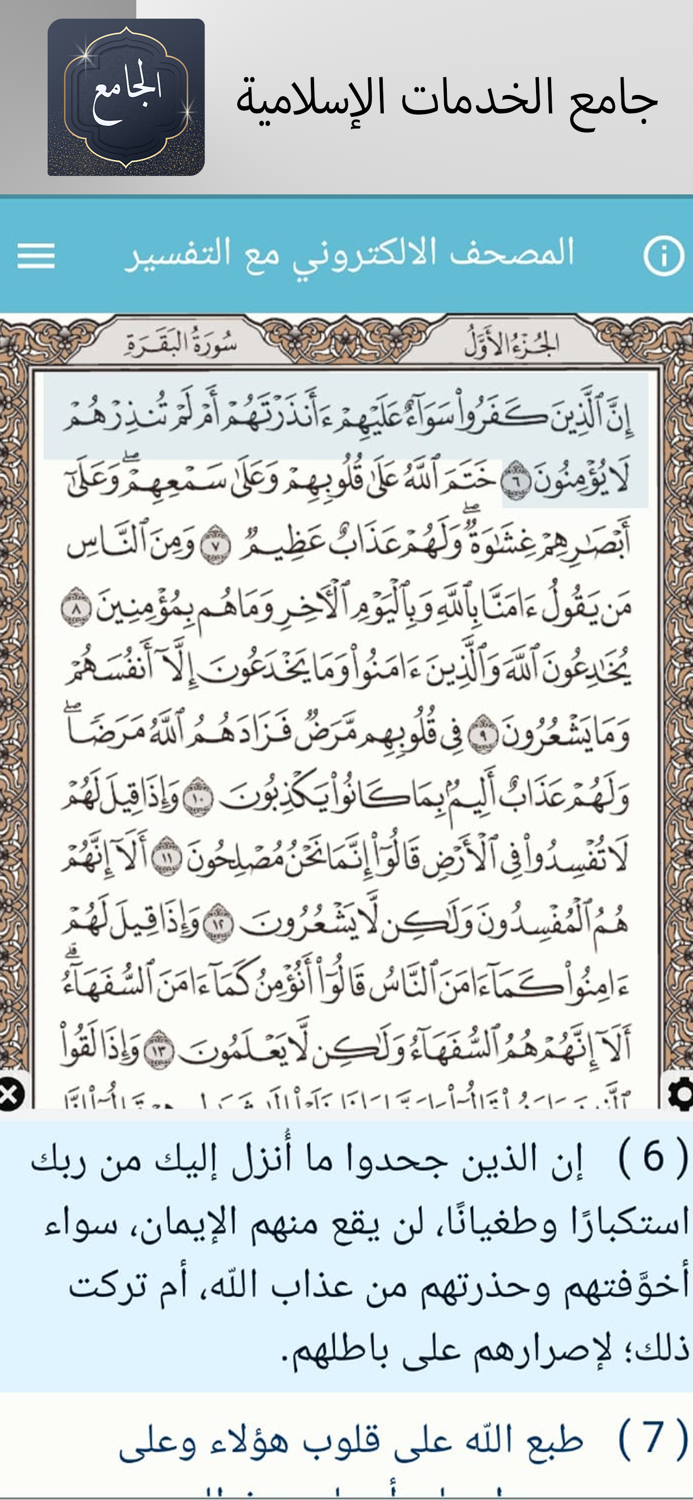 جامع الخدمات الإسلامية
الجامع
المصحف الالكتروني مع التفسير
الجُزْءُ الأَوَّلُ
سُورَةُ البَقَرَةِ
إِنَّ ٱلَّذِينَ كَفَرُوا۟ سَوَآءٌ عَلَيْهِمْ ءَأَنذَرْتَهُمْ أَمْ لَمْ تُنذِرْهُمْ
لَا يُؤْمِنُونَ ٦ خَتَمَ ٱللَّهُ عَلَىٰ قُلُوبِهِمْ وَعَلَىٰ سَمْعِهِمْ ۖ وَعَلَىٰٓ
أَبْصَـٰرِهِمْ غِشَـٰوَةٌ ۖ وَلَهُمْ عَذَابٌ عَظِيمٌ ٧ وَمِنَ ٱلنَّاسِ
مَن يَقُولُ ءَامَنَّا بِٱللَّهِ وَبِٱلْيَوْمِ ٱلْـَٔاخِرِ وَمَا هُم بِمُؤْمِنِينَ ٨
يُخَـٰدِعُونَ ٱللَّهَ وَٱلَّذِينَ ءَامَنُوا۟ وَمَا يَخْدَعُونَ إِلَّآ أَنفُسَهُمْ
وَمَا يَشْعُرُونَ ٩ فِى قُلُوبِهِم مَّرَضٌ فَزَادَهُمُ ٱللَّهُ مَرَضًا ۖ
وَلَهُمْ عَذَابٌ أَلِيمٌۢ بِمَا كَانُوا۟ يَكْذِبُونَ ١٠ وَإِذَا قِيلَ لَهُمْ
لَا تُفْسِدُوا۟ فِى ٱلْأَرْضِ قَالُوٓا۟ إِنَّمَا نَحْنُ مُصْلِحُونَ ١١ أَلَآ إِنَّهُمْ
هُمُ ٱلْمُفْسِدُونَ وَلَـٰكِن لَّا يَشْعُرُونَ ١٢ وَإِذَا قِيلَ لَهُمْ
ءَامِنُوا۟ كَمَآ ءَامَنَ ٱلنَّاسُ قَالُوٓا۟ أَنُؤْمِنُ كَمَآ ءَامَنَ ٱلسُّفَهَآءُ ۗ
أَلَآ إِنَّهُمْ هُمُ ٱلسُّفَهَآءُ وَلَـٰكِن لَّا يَعْلَمُونَ ١٣ وَإِذَا لَقُوا۟
( 6 ) إن الذين جحدوا ما أُنزل إليك من ربك
استكبارًا وطغيانًا، لن يقع منهم الإيمان، سواء
أخوَّفتهم وحذرتهم من عذاب الله، أم تركت
ذلك؛ لإصرارهم على باطلهم.
( 7 ) طبع الله على قلوب هؤلاء وعلى